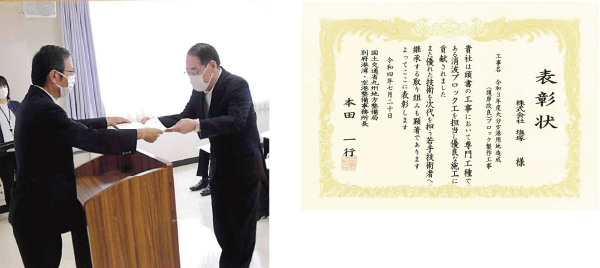 表彰状
株式会社 塩塚 様
工事名 令和3年度大分空港用地造成
(護岸改良)ブロック製作工事
貴社は頭書の工事において専門工種で
ある消波ブロック工を担当し優良な施工に
貢献されました
また優れた技術を次代を担う若手技術者へ
継承する取り組みも顕著であります
よってここに表彰します
令和四年七月二十日
国土交通省九州地方整備局
別府港湾・空港整備事務所長
本田 一行